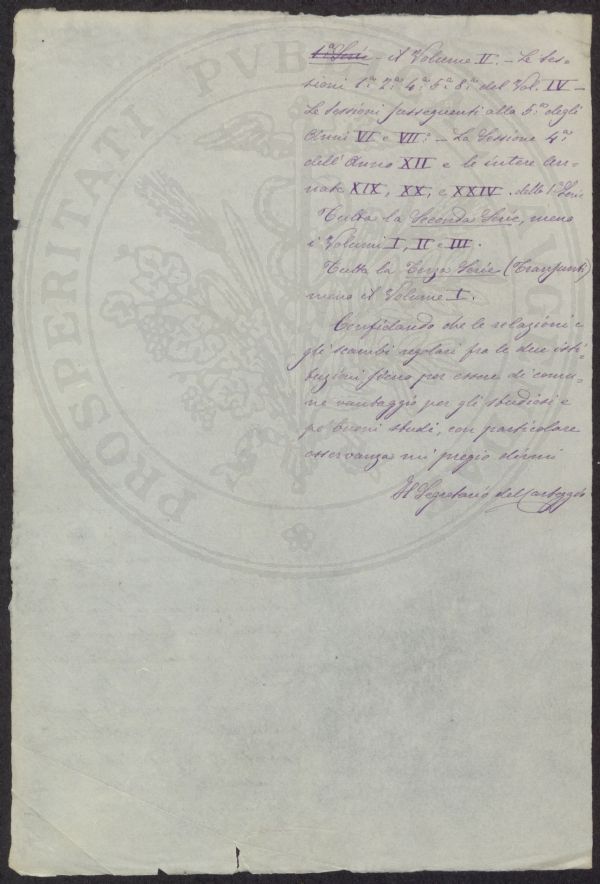 1ª Serie - il Volume II. - Le Ses=
sioni 1ª 2ª 4ª 5ª 8ª del Vol. IV -
Le sessioni susseguenti alla 5ª degli
Anni VI e VII: - La Sessione 4ª
dell'Anno XII e le intere an=
nate XIX, XX, e XXIV. della 1ª Serie
Tutta la Seconda Serie, meno
i Volumi I, II e III.
Tutta la Terza Serie (Transunti)
meno il Volume I.
Confidando che le relazioni e
gli scambi regolari fra le due isti=
tuzioni sieno per essere di comu=
ne vantaggio per gli studiosi e
pe' buoni studi, con particolare
osservanza mi pregio dirmi
Il Segretario del Carteggio
PROSPERITATI PVB